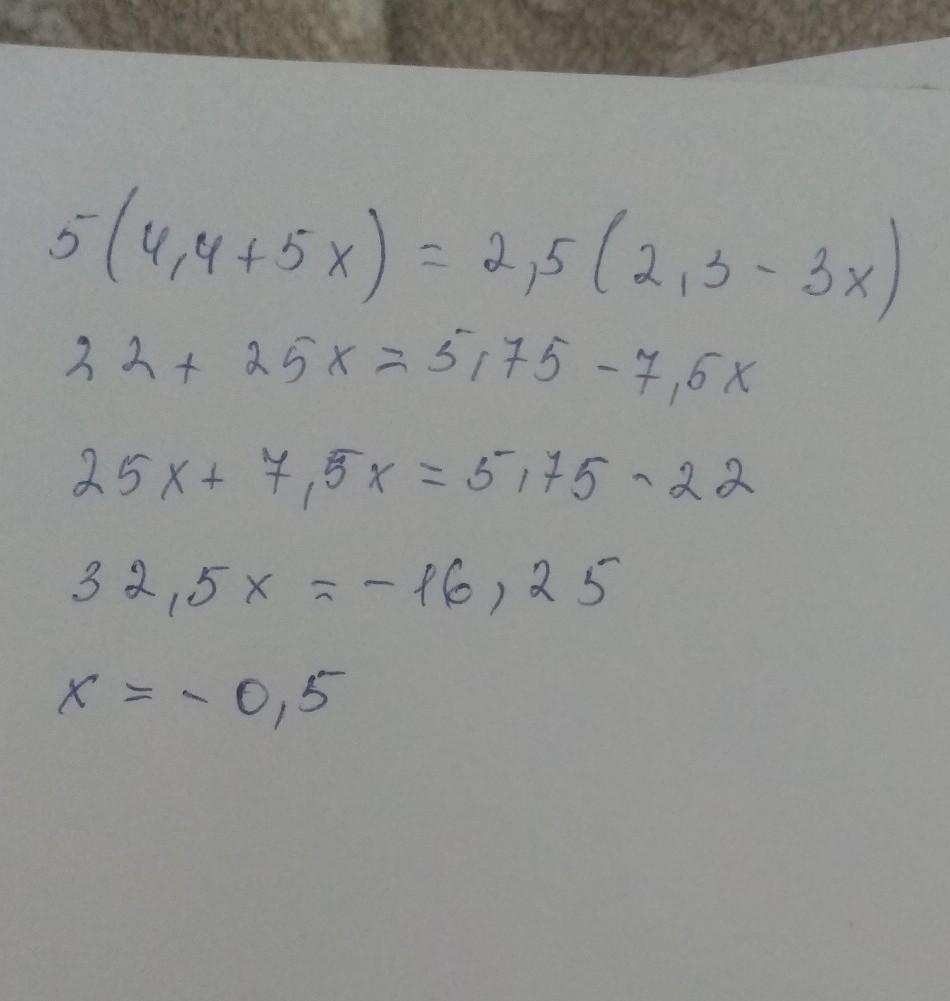 5(4,4+5x) = 2,5(2,3-3x)
22+ 25x = 5,75 -7,5x
25x+ 7,5x = 5,75 -22
32,5x = -16,25
x = - 0,5